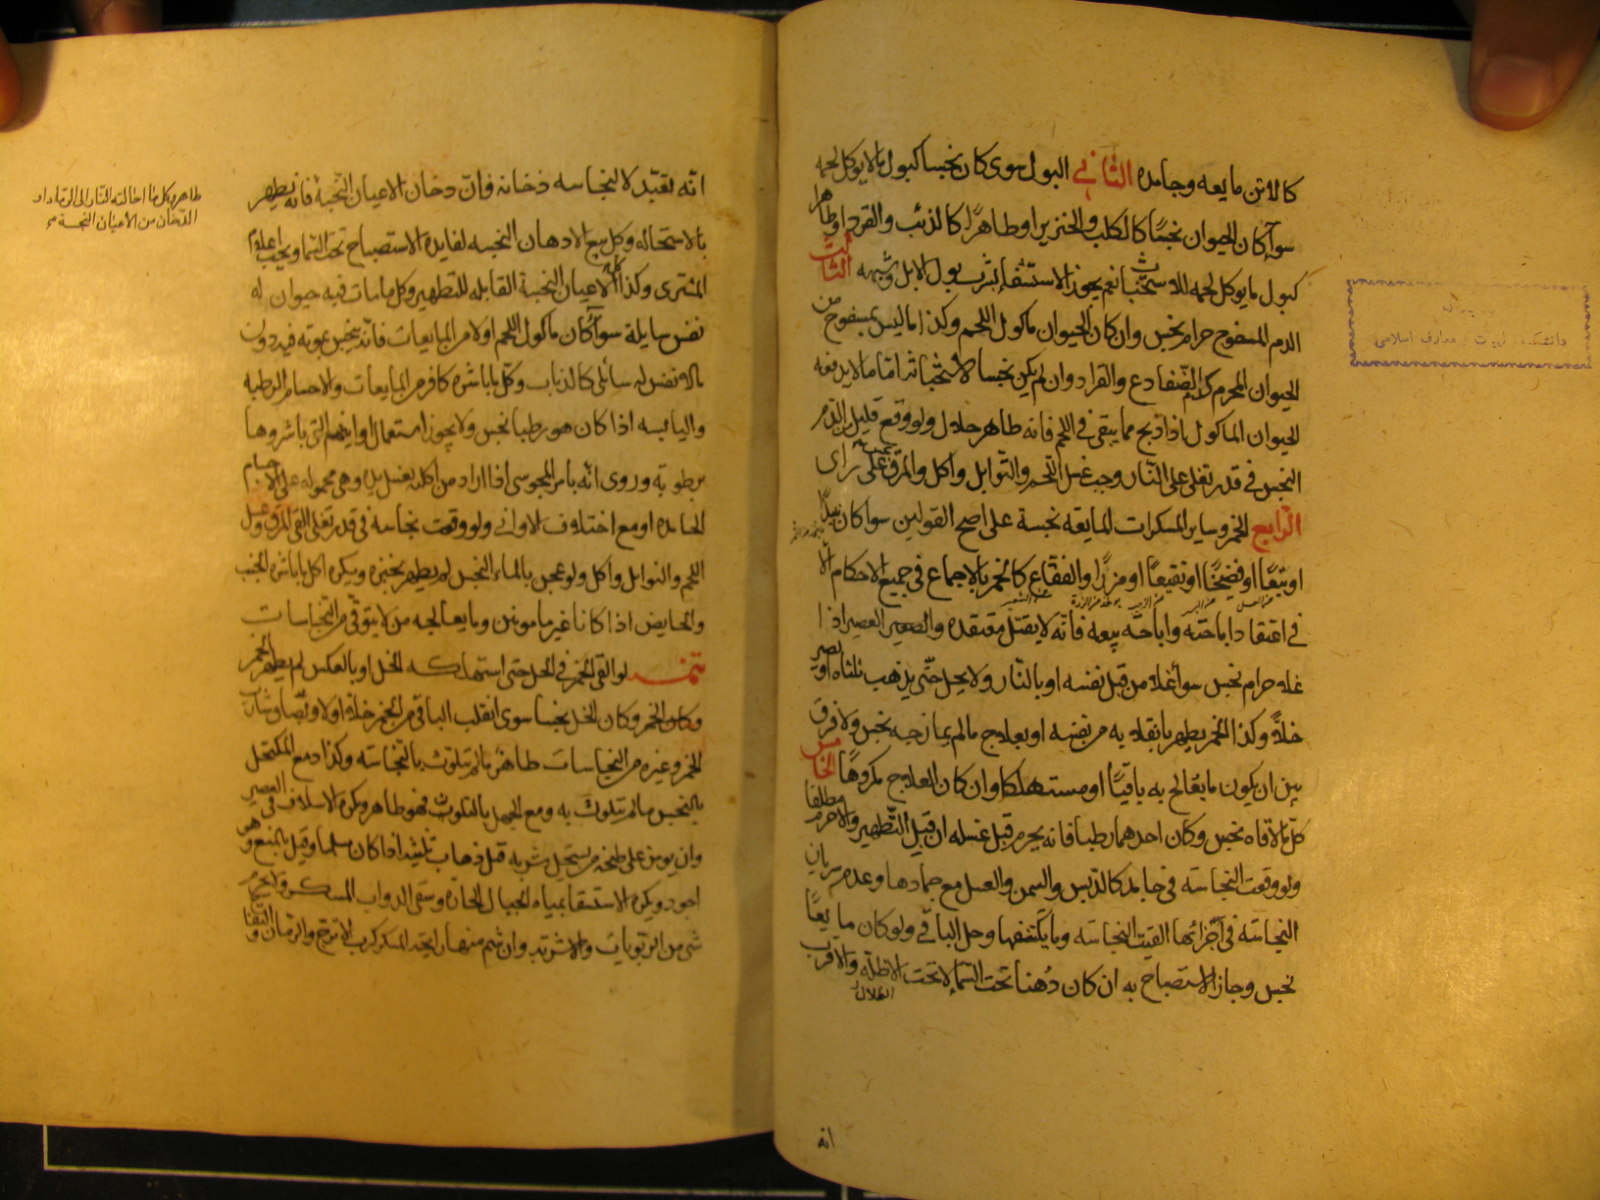 كالاذن مايعه وجامده الثاني البول سوى كان نجسا كبول مالا يوكل لحمه
سوآء كان الحيوان نجسًا كالكلب والخنزير او طاهرًا كالذئب والقرد او طاهرا
كبول ما يوكل لحمه للاستخباث نعم يجوز الاستشفاء بشرب بول الابل وشبهه الثالث
الدم المسفوح حرام نجس وان كان الحيوان ماكول اللحم وكذا ما ليس بمسفوح من
الحيوان المحرم كدم الضفادع والقراد وان لم يكن نجسا لاستخباثه امّا ما لا يدفعه
الحيوان الماكول اذا ذبح مما يبقى في اللحم فانه طاهر حلال ولو وقع قليل من الدم
النجس في قدر تغلى على النّار وجب غسل اللحم والتوابل واكل والمرق نجس على رأى
الرابع الخمر وساير المسكرات المايعه نجسة على اصح القولين سوا كان نبيذًا
او بتعًا او فضيخًا او نقيعًا او مزرًا والفقاع كالخمر بالاجماع في جميع الاحكام الّا
من العسل من البسر من الزبيب من الذرة من الشعير
في اعتقاد اباحته واباحة بيعه فانه لا يقتل معتقده والعصير اذا
غلا حرام نجس سوآء غلا من قبل نفسه او بالنّار ولا يحل حتّى يذهب ثلثاه او يصير
خلاً وكذا الخمر يطهر بانقلابه من نفسه او بعلاج ما لم يمازجه نجس ولا فرق
بين ان يكون ما يعالج به باقيًا او مستهلكا وان كان العلاج مكروهًا الخامس
كلّ ما لاقاه نجس وكان احدهما رطبا فانه يحرم قبل غسله ان قبل التّطهير والاحرم مطلقا
ولو وقعت النجاسه في جامد كالدّبس والسمن والعسل مع جمادها وعدم سريان
النجاسه في أجزائها القيت النجاسه وما يكتنفها وحل الباقي ولو كان مايعًا
نجس وجاز الاستصباح به ان كان دُهنا تحت السّماء لا تحت الاظلّه والاقرب
الظلال
انه
انّه تعبّد لا لنجاسه دخانه فانّ دخان الاعيان النّجسة فانّه يطهر
طاهر وكل ما احالته النّار الى الرّماد او
الدخان من الاعيان النجسة
بالاستحاله وكل بيع الادهان النجسه لفايدة الاستصباح تحت السّما ويجب اعلام
المشترى وكذا الاعيان النجسة القابله للتطهير وكل ما مات فيه حيوان له
نفس سايلة سوآء كان ماكول اللحم او لا من المايعات فانّه ينجس بموته فيه دون
ما لا نفس له سائله كالذباب وكلّ ما باشره كافر من المايعات والاجسام الرطبه
واليابسه اذا كان هو رطبا نجس ولا يجوز استعمال اوانيهم التي باشروها
برطوبة وروى انّه يأمر المجوسى اذا اراد من اكله بغسل يده وهى محموله على الاجسام
الجامده او مع اختلاف الاوانى ولو وقعت نجاسه في قدر تغلى القى المرق وغسل
اللحم والتوابل واكل ولو عجن بالماء النجس لم يطهر بخبزه ويكره اكل ما باشره الجنب
والحايض اذا كانا غير مامونين وما يعالجه من لا يتوقّى من النّجاسات
تتمه لو القى الخمر في الخل حتى استهلكه الخل او بالعكس لم يطهر الخمر
وكان الخمر وكان الخل نجسا سوى انقلب الباقى من الخمر خلاً اولا وبصاق شارب
الخمر وغيره من النجاسات طاهر ما لم يتلوّث بالنجاسه وكذا دمع المكتحل
بالنجس ما لم يتلوث به ومع الجهل بالتلوث فهو طاهر ويكره الاسلاف في العصير
وان يومن على طبخه من يستحل شربه قبل ذهاب ثلثيه اذا كان مسلما وقيل بالمنع وهو
اجود ويكره الاستشفا بمياه الجبال الحارّه وسقى الدواب المسكر ولا يحرم
شى من الربوبات والاشربه وان شم منها رايحة المسكر كرب الاترج والرمان والتفّاح